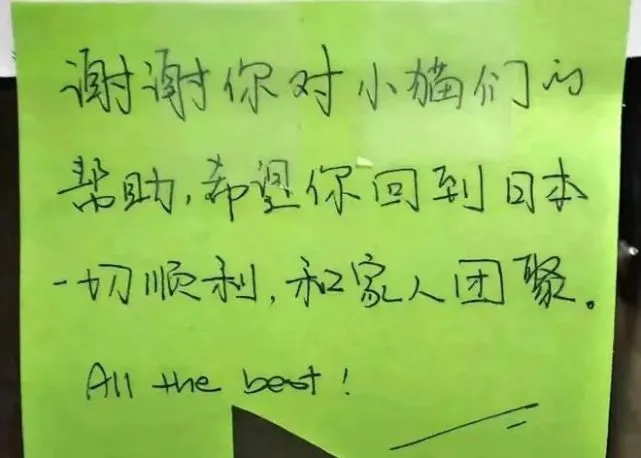 谢谢你对小猫们的
帮助,希望你回到日本
一切顺利,和家人团聚。
All the best!